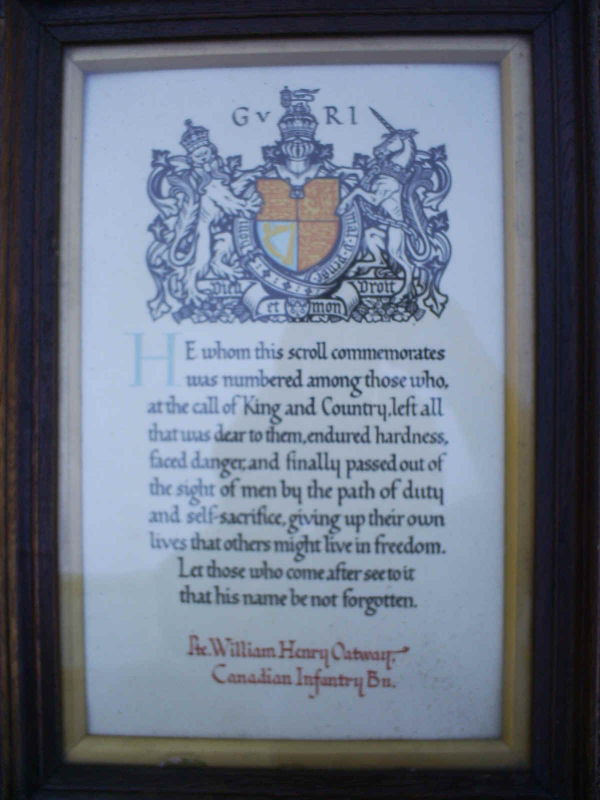 G V R I
Dieu et mon Droit
HE whom this scroll commemorates
was numbered among those who,
at the call of King and Country, left all
that was dear to them, endured hardness,
faced danger, and finally passed out of
the sight of men by the path of duty
and self-sacrifice, giving up their own
lives that others might live in freedom.
Let those who come after see to it
that his name be not forgotten.
Pte. William Henry Oatway,
Canadian Infantry Bn.